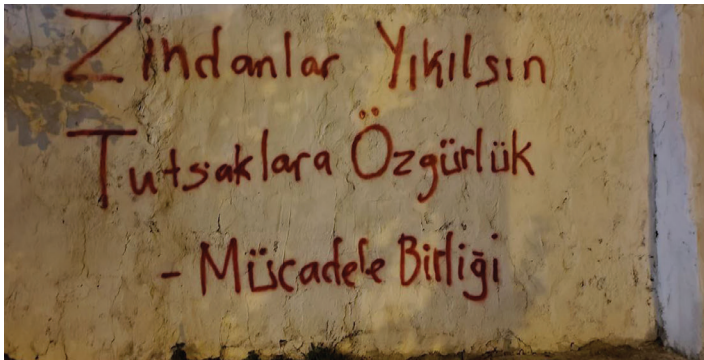 Zindanlar Yıkılsın
Tutsaklara Özgürlük
- Mücadele Birliği